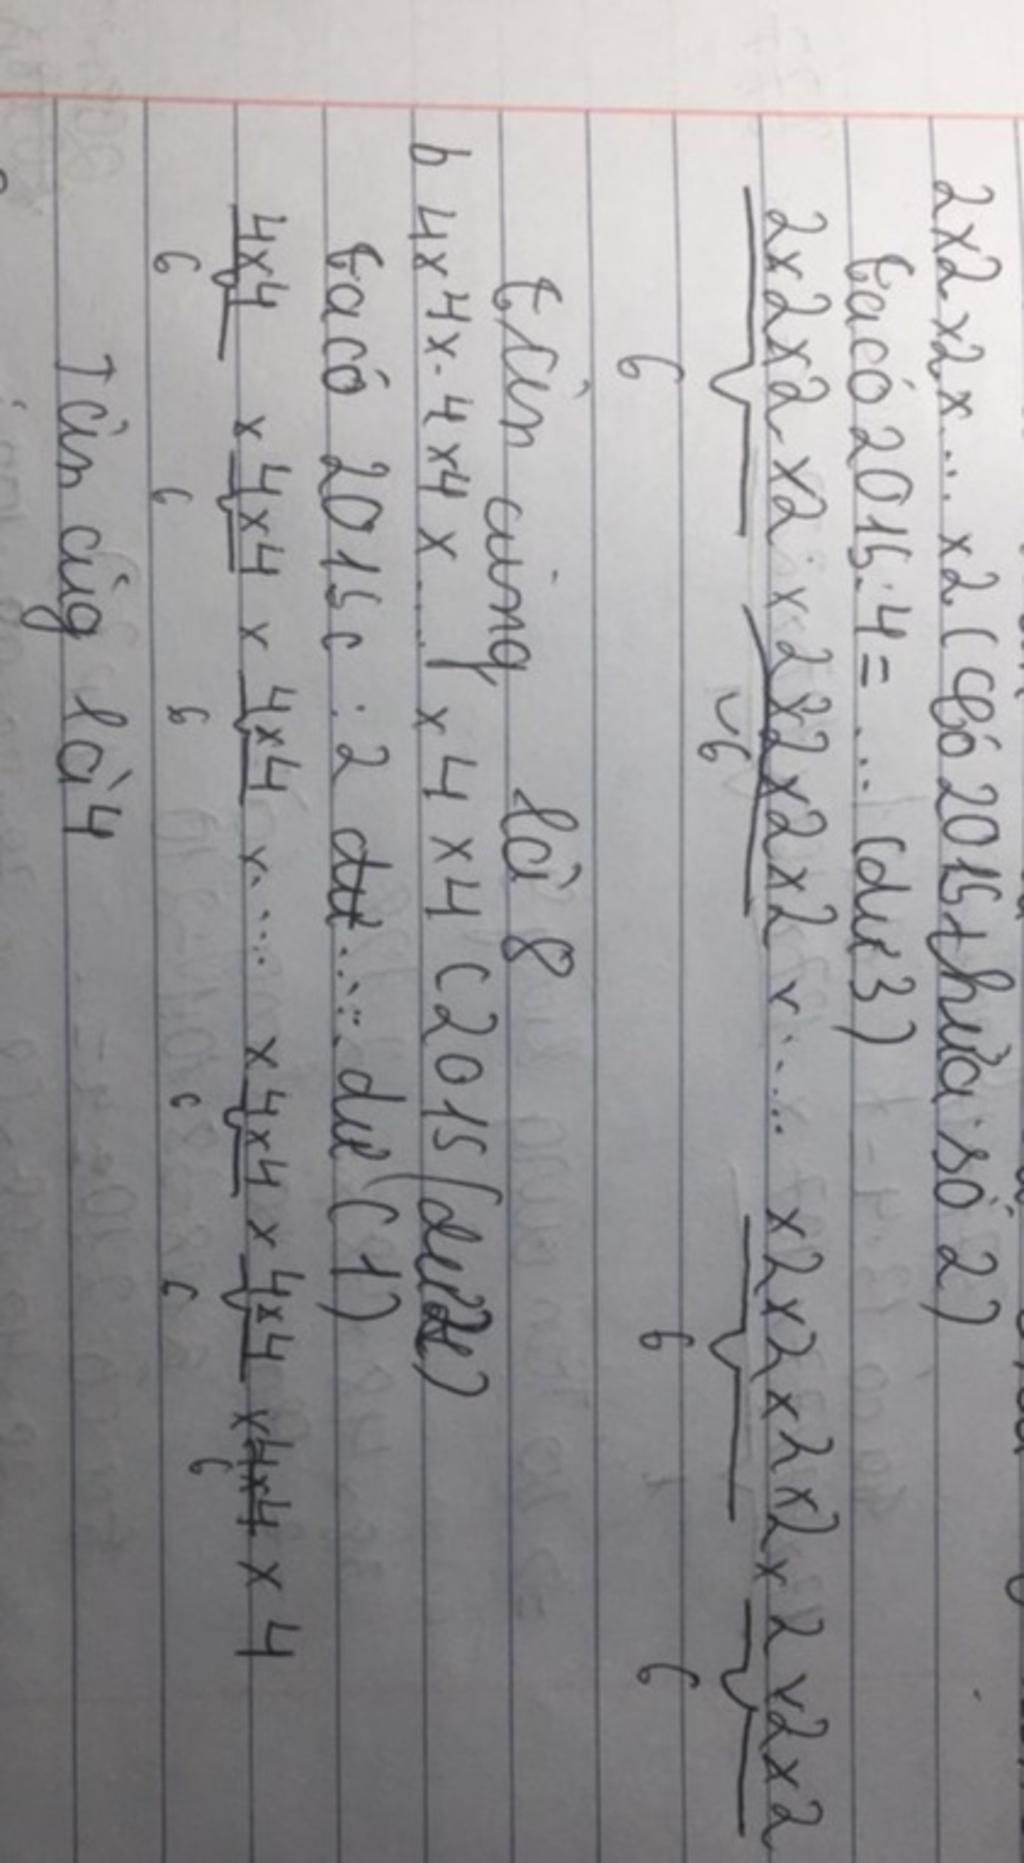 2x2x2x... x2 (Có 2015 thừa số 2)
ta có 2015:4= ... (dư 3)
2x2x2x2x2x2x2x2x.... x2x2x2x2x2x2x2
6 6 6 6
tận cùng là 8
b 4x4x4x4x....x4x4 (2015
ta có 2015 : 2 ..... dư (1)
4x4 x 4x4 x 4x4 x.... x4x4 x 4x4 x4x4 x 4
6 6 6 6 6 6
Tận cùg là 4